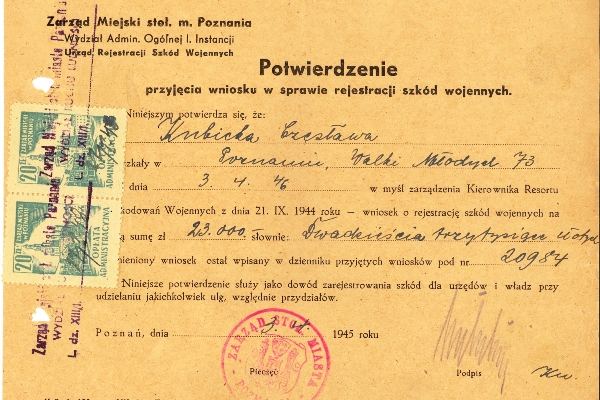 Zarząd Miejski stoł. m. Poznania
Wydział Admin. Ogólnej I. Instancji
Urząd Rejestracji Szkód Wojennych
Potwierdzenie
przyjęcia wniosku w sprawie rejestracji szkód wojennych.
Niniejszym potwierdza się, że:
Kubicka Czesława
zkały w Poznaniu, Walki Młodych 73
dnia 3. 1. 46 w myśl zarządzenia Kierownika Resortu
kodowań Wojennych z dnia 21. IX. 1944 roku — wniosek o rejestrację szkód wojennych na
ą sumę zł 23.000 — słownie: Dwadzieścia trzy tysiące złotych
mieniony wniosek ostał wpisany w dzienniku przyjętych wniosków pod nr 20984
Niniejsze potwierdzenie służy jako dowód zarejestrowania szkód dla urzędów i władz przy
udzielaniu jakichkolwiek ulg, względnie przydziałów.
Poznań, dnia 3. 1. 1945 roku
Pieczęć
Podpis
ZARZĄD STOŁ. MIASTA
20 ZŁ
OPŁATA
ADMINISTRACYJNA
20 ZŁ
L. dz. XIII/I